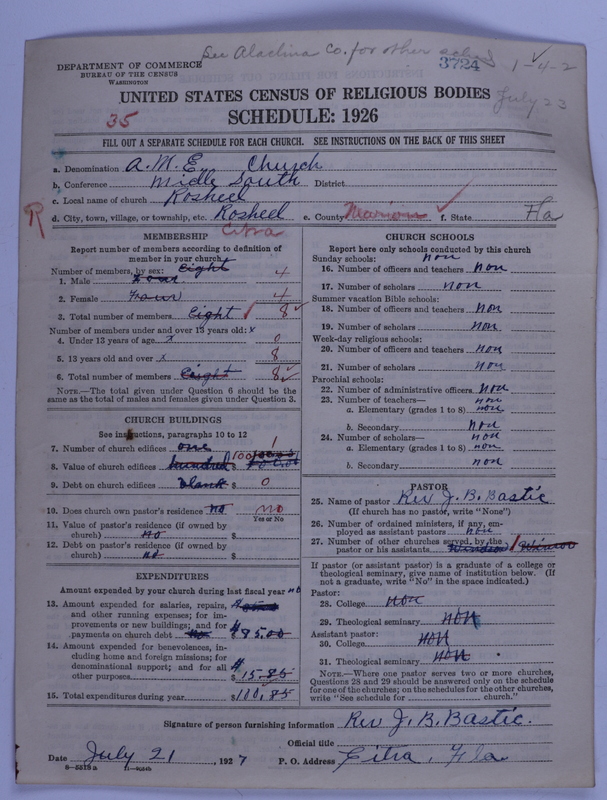 See Alachua Co. for other sched
DEPARTMENT OF COMMERCE
BUREAU OF THE CENSUS
WASHINGTON
3724
1-4-2
UNITED STATES CENSUS OF RELIGIOUS BODIES
July 23
35
SCHEDULE: 1926
FILL OUT A SEPARATE SCHEDULE FOR EACH CHURCH. SEE INSTRUCTIONS ON THE BACK OF THIS SHEET
a. Denomination A.M.E. Church
b. Conference Midle South District
c. Local name of church Rosheel
R
d. City, town, village, or township, etc. Rosheel e. County Marion f. State Fla
Citra
MEMBERSHIP
Report number of members according to definition of
member in your church
Number of members, by sex: eight
1. Male four 4
2. Female Four 4
3. Total number of members Eight 8
Number of members under and over 13 years old: x
4. Under 13 years of age x 0
5. 13 years old and over x 8
6. Total number of members Eight 8
NOTE.—The total given under Question 6 should be
the same as the total of males and females given under Question 3.
CHURCH BUILDINGS
See instructions, paragraphs 10 to 12
7. Number of church edifices one 1
8. Value of church edifices hundred $
9. Debt on church edifices blank $ 0
10. Does church own pastor's residence no no
Yes or No
11. Value of pastor's residence (if owned by
church) no $
12. Debt on pastor's residence (if owned by
church) no $
EXPENDITURES
Amount expended by your church during last fiscal year no
13. Amount expended for salaries, repairs,
and other running expenses; for im-
provements or new buildings; and for
payments on church debt $85.00
14. Amount expended for benevolences, in-
cluding home and foreign missions; for
denominational support; and for all
other purposes $ 15.85
15. Total expenditures during year $100.85
CHURCH SCHOOLS
Report here only schools conducted by this church
Sunday schools: non
16. Number of officers and teachers non
17. Number of scholars non
Summer vacation Bible schools:
18. Number of officers and teachers non
19. Number of scholars non
Week-day religious schools:
20. Number of officers and teachers non
21. Number of scholars non
Parochial schools:
22. Number of administrative officers non
23. Number of teachers— non
a. Elementary (grades 1 to 8) non
b. Secondary non
24. Number of scholars— non
a. Elementary (grades 1 to 8) non
b. Secondary non
PASTOR
25. Name of pastor Rev J. B. Bastic
(If church has no pastor, write "None")
26. Number of ordained ministers, if any, em-
ployed as assistant pastors non
27. Number of other churches served by the
pastor or his assistants 1
If pastor (or assistant pastor) is a graduate of a college or
theological seminary, give name of institution below. (If
not a graduate, write "No" in the space indicated.)
Pastor:
28. College non
29. Theological seminary non
Assistant pastor:
30. College non
31. Theological seminary non
NOTE.—Where one pastor serves two or more churches,
Questions 28 and 29 should be answered only on the schedule
for one of the churches; on the schedules for the other churches,
write "See schedule for church."
Signature of person furnishing information Rev J. B. Bastic.
Official title
Date July 21, 1927 P. O. Address Citra, Fla
8-5518a